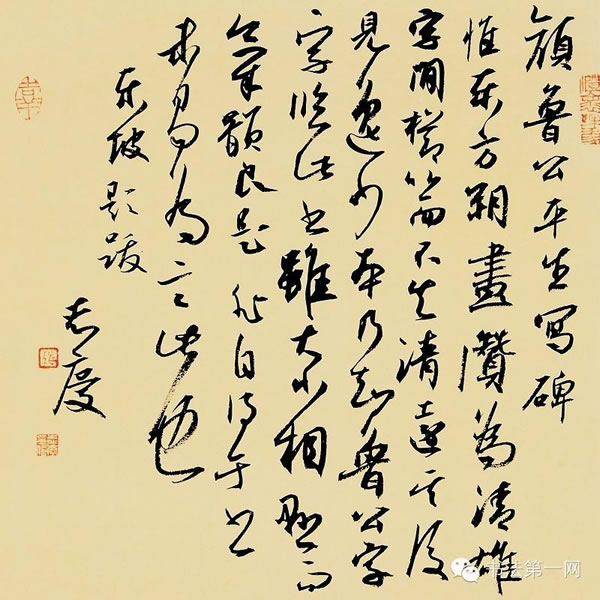 顔魯公平生寫碑
惟东方朔畫讚為清雄
字間櫛比而不失清遠其後
見逸少本乃知魯公字
字臨此书雖大小相懸而
氣韻良是非自得于书
未易为言此也
东坡题跋
志慶
书法第一网